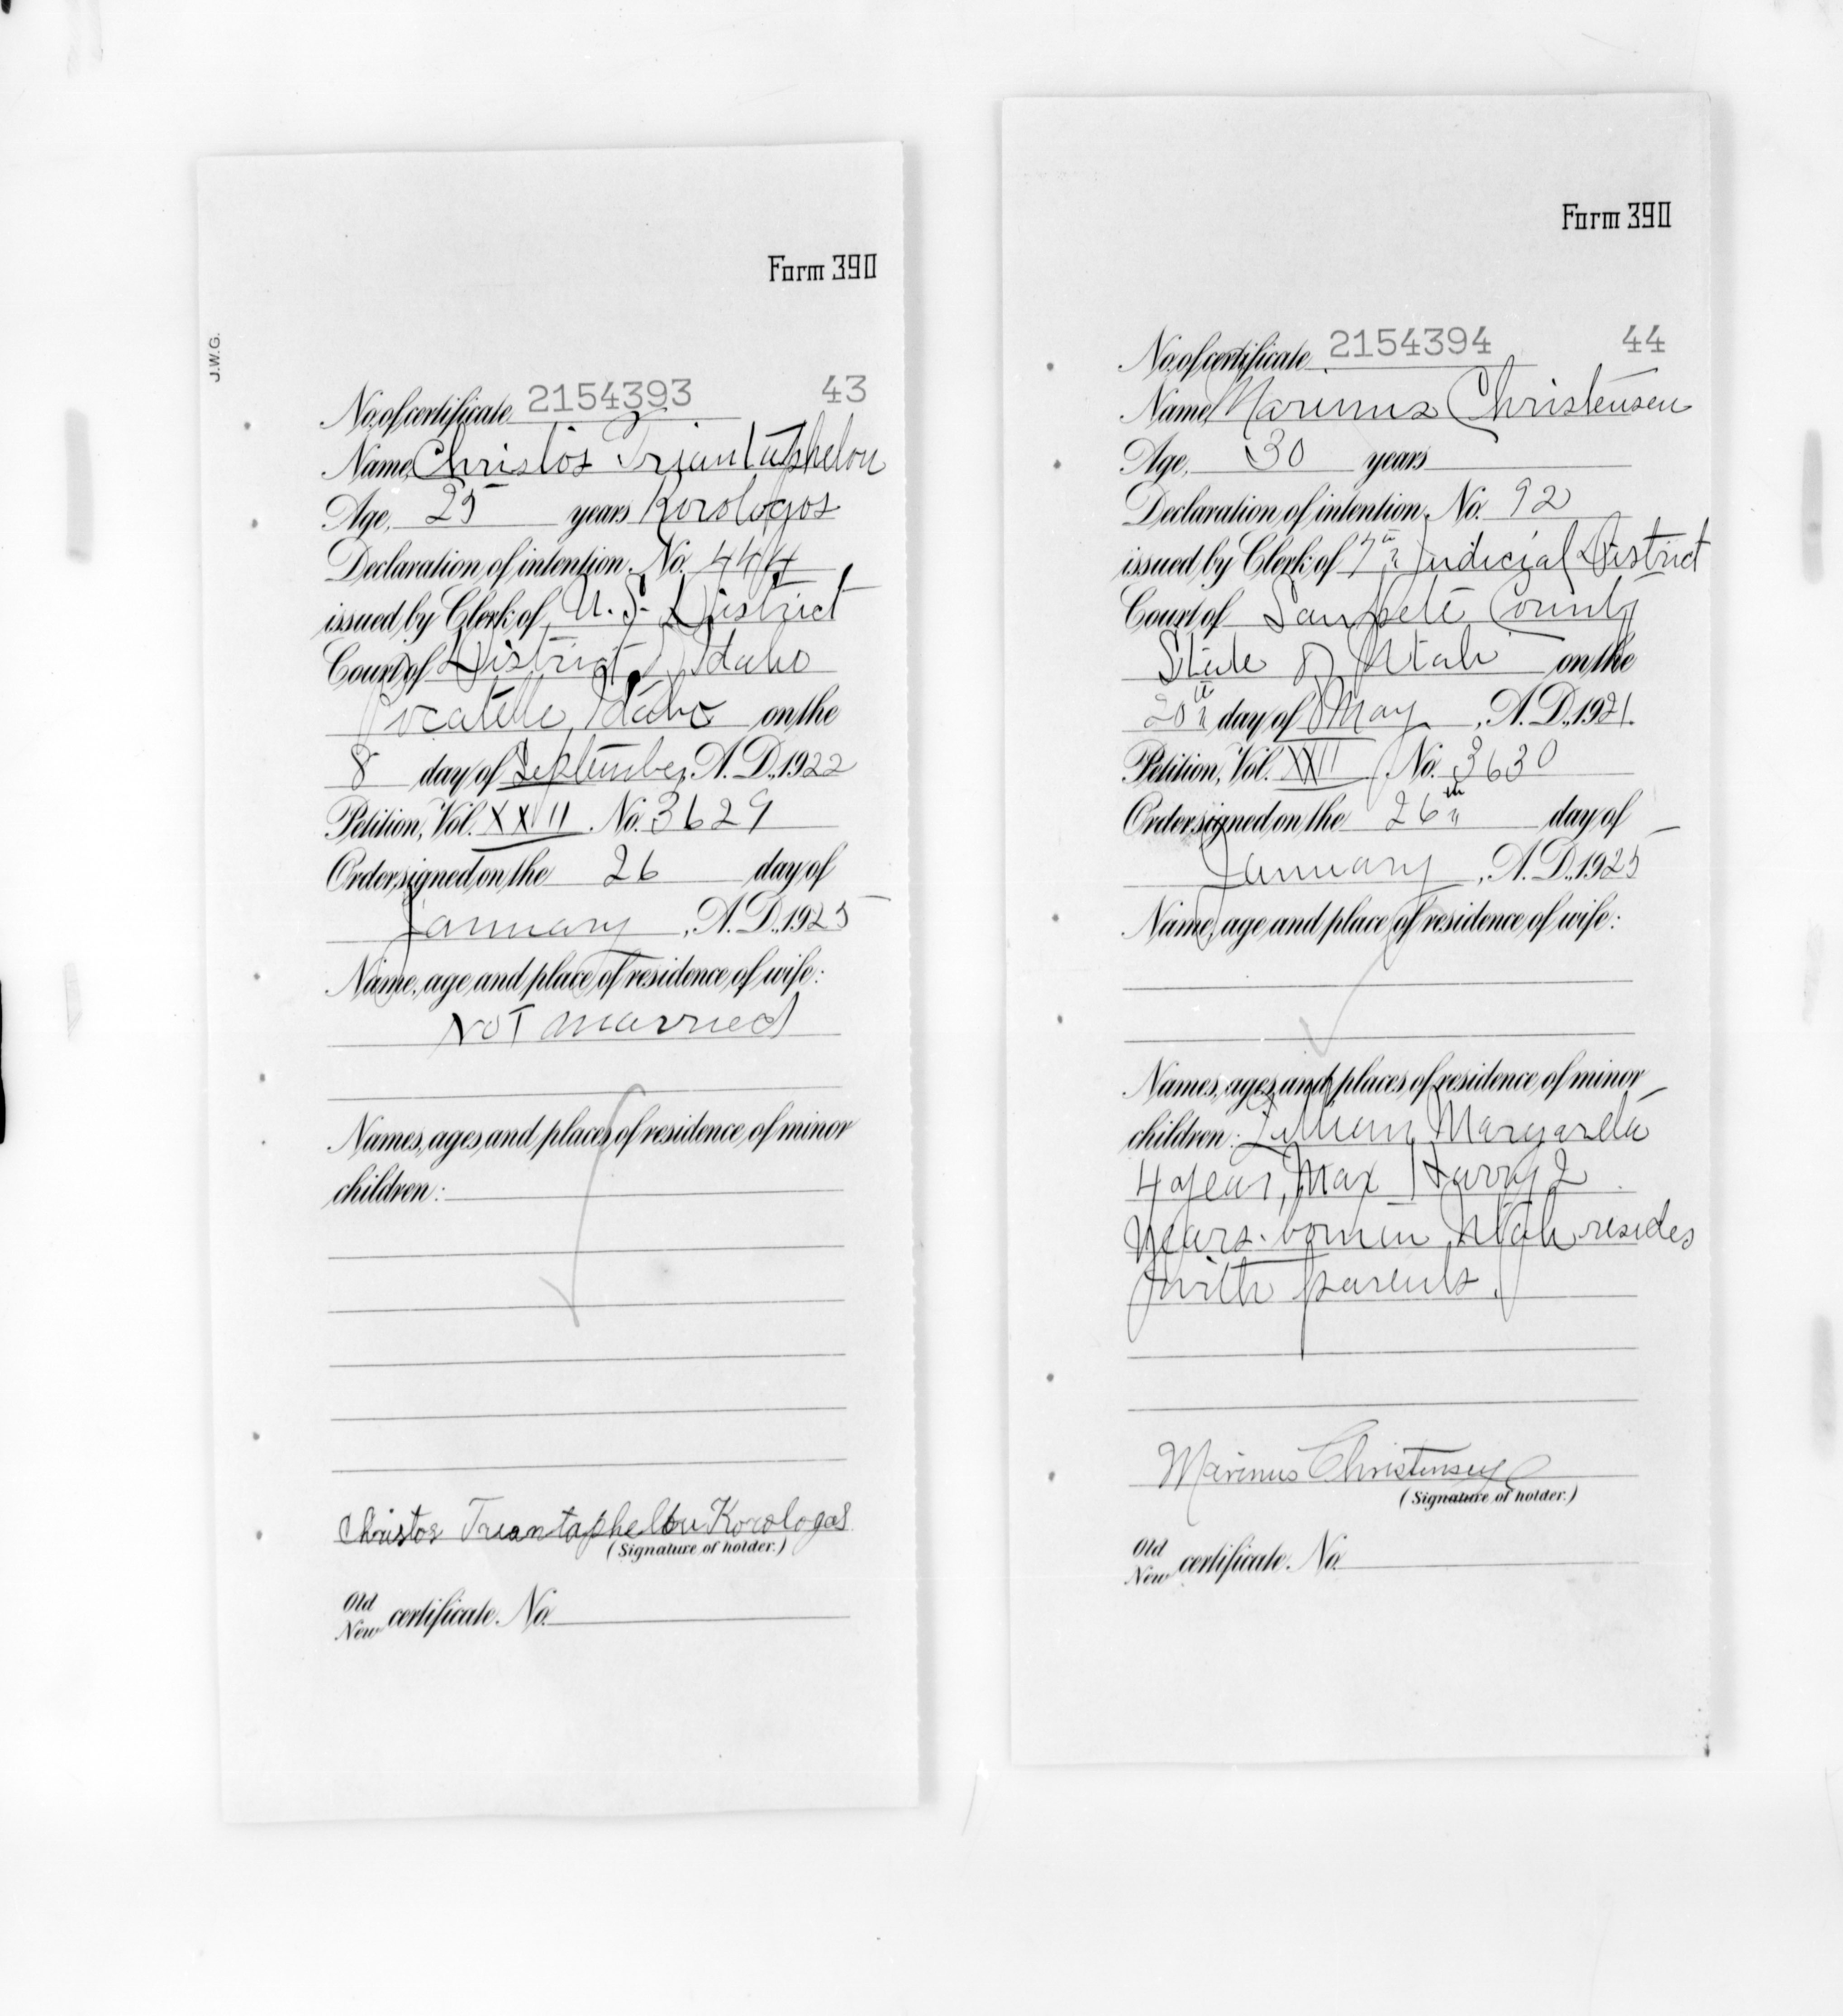 J.W.G.
Form 390
No. of certificate 2154393 43
Name, Christos Triantaphelou
Age, 25 years Korologos
Declaration of intention, No. 444
issued by Clerk of U. S. District
Court of District of Idaho
Pocatello, Idaho on the
8 day of September, A. D., 1922
Petition, Vol. XXVII No. 3629
Order signed on the 26 day of
January, A. D., 1925
Name, age and place of residence of wife:
NOT married
Names, ages and places of residence of minor
children:
Christos Triantaphelou Korologos
(Signature of holder.)
Old
New certificate No.
Form 390
No. of certificate 2154394 44
Name, Marinus Christensen
Age, 30 years
Declaration of intention, No. 92
issued by Clerk of 7th Judicial District
Court of Sanpete County
State of Utah on the
20th day of May, A. D., 1921.
Petition, Vol. No. 3630
Order signed on the 26th day of
January, A. D., 1925
Name, age and place of residence of wife:
Names, ages and places of residence of minor
children: Lillian Margarela
4 years, Max Harry 2
years. born in Utah resides
with parents.
Marinus Christensen
(Signature of holder.)
Old
New certificate No.